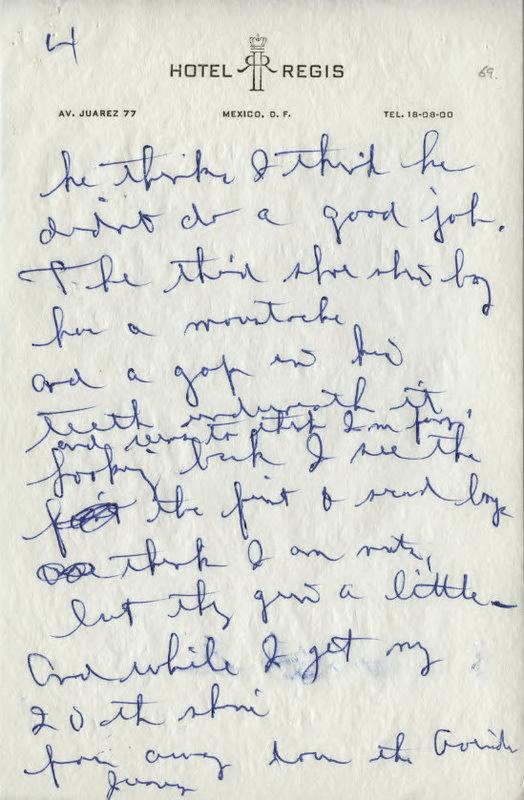 4
HOTEL RR REGIS
69.
AV. JUAREZ 77 MEXICO, D. F. TEL. 18-08-00
he thinks I think he
didn't do a good job.
The third shoe shine boy
has a moustache
and a gap in his
teeth underneath it,
and seems to think I'm funny,
Looking back I see the
the first & second boys
think I am nuts,
but they grin a little—
And while I get my
20th shine
far away down the Avenida
Juarez